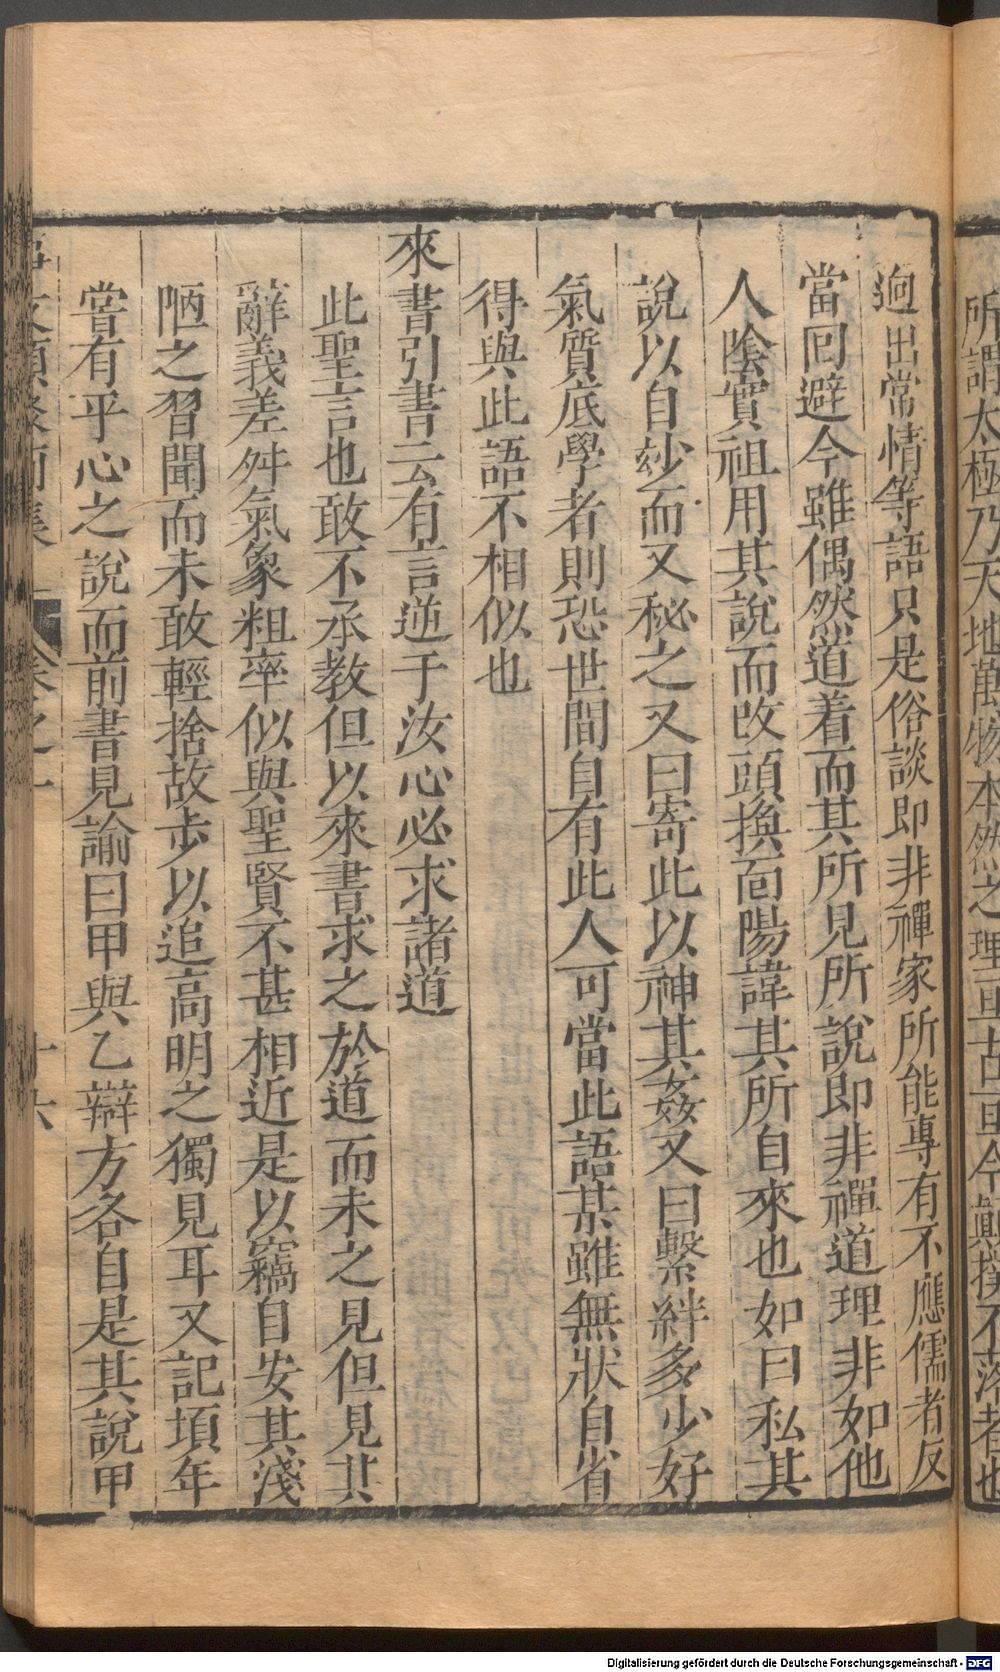 所謂太極乃天地萬物本然之理亘古亘今顚撲不落者也
逈出常情等語只是俗談即非禪家所能專有不應儒者反
當回避今雖偶然道着而其所見所說即非禪道理非如他
人陰實祖用其說而改頭換面陽諱其所自來也如曰私其
說以自玅而又秘之又曰寄此以神其姦又曰繫絆多少好
氣質底學者則恐世間自有此人可當此語某雖無狀自省
得與此語不相似也
來書引書云有言逆于汝心必求諸道
此聖言也敢不承教但以來書求之於道而未之見但見其
辭義差舛氣象粗率似與聖賢不甚相近是以竊自安其淺
陋之習聞而未敢輕捨故步以追高明之獨見耳又記頃年
嘗有平心之說而前書見諭曰甲與乙辯方各自是其說甲
卷之一
十六
Digitalisierung gefördert durch die Deutsche Forschungsgemeinschaft - DFG